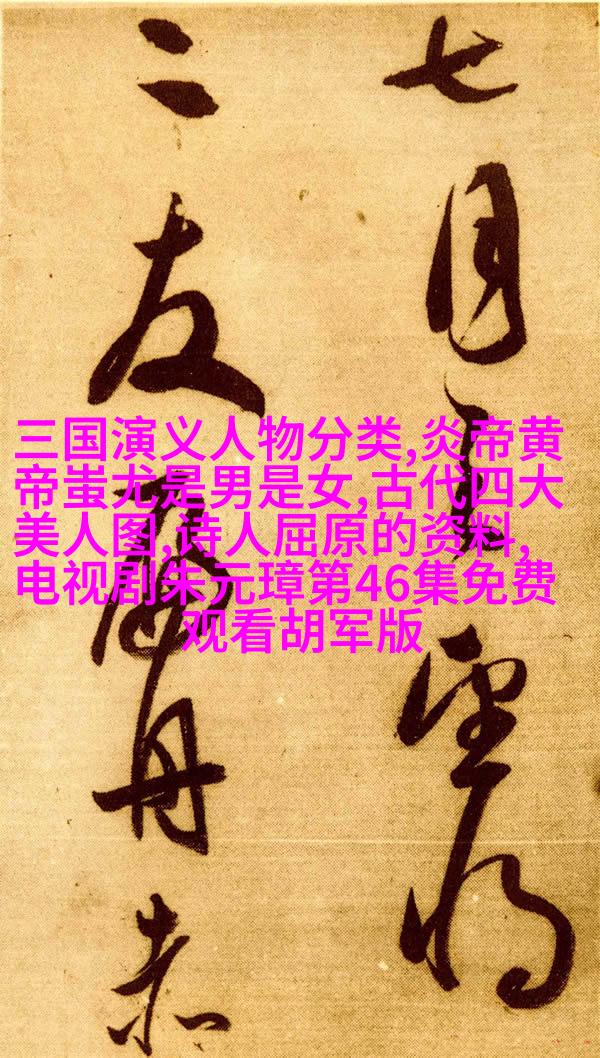 三国演义人物分类,炎帝黄
帝蚩尤是男是女,古代四大
美人图,诗人屈原的资料,
电视剧朱元璋第46集免费
观看胡军版
七月望
二友舟赤